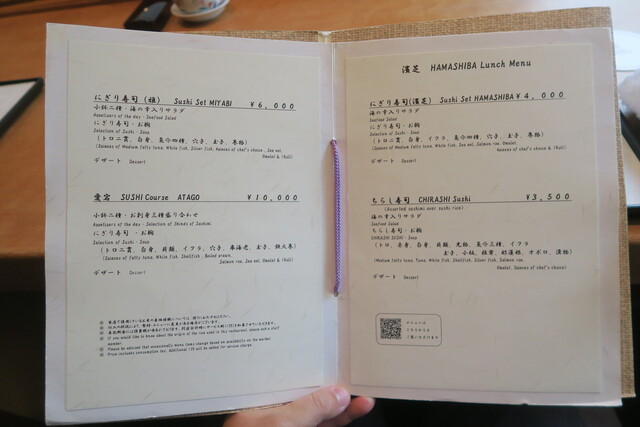 にぎり寿司（雅） Sushi Set MIYABI ¥6,000
小鉢二種・海の幸入りサラダ
Appetisers of the day・Seafood Salad
にぎり寿司・お椀
Selection of Sushi・Soup
(トロ二貫、白身、魚介四種、穴子、玉子、巻物)
Omelet & (Roll)
デザート Dessert
愛宕 SUSHI Course ATAGO ¥10,000
小鉢二種・お刺身三種盛り合わせ
Appetisers of the day・Selection of 3kinds of Sashimi
にぎり寿司・お椀
Selection of Sushi・Soup
(トロ二貫、白身、貝類、イクラ、穴子、車海老、玉子、鉄火巻)
Salmon roe, Sea eel, Omelet & (Roll)
デザート Dessert
※ If you would like to know about the origin of the rice used in this restaurant, please ask a staff
member.
※ Please be advised that occasionally menu items change based on availability on the market
※ Price includes consumption tax. Additional 15% will be added for service charge.
濱芝 HAMASHIBA Lunch Menu
にぎり寿司(濱芝) Sushi Set HAMASHIBA ¥4,000
海の幸入りサラダ
Seafood Salad
にぎり寿司・お椀
Selection of Sushi・Soup
(トロ二貫、白身、イクラ、魚介四種、穴子、玉子、巻物)
Omelet & (Roll)
デザート Dessert
ちらし寿司 CHIRASHI Sushi ¥3,500
(Assorted sashimi over sushi rice)
海の幸入りサラダ
Seafood Salad
ちらし寿司・お椀
CHIRASHI SUSHI・Soup
(トロ、赤身、白身、貝類、光物、魚介三種、イクラ
玉子、小柱、椎茸、干瓢、オボロ、漬物)
(Medium fatty tuna, Tuna, White fish, Shellfish, Silver fish, Salmon roe,
Omelet, 3kinds of chef's choice)
デザート Dessert
メニューは
こちらから
ご覧いただけます